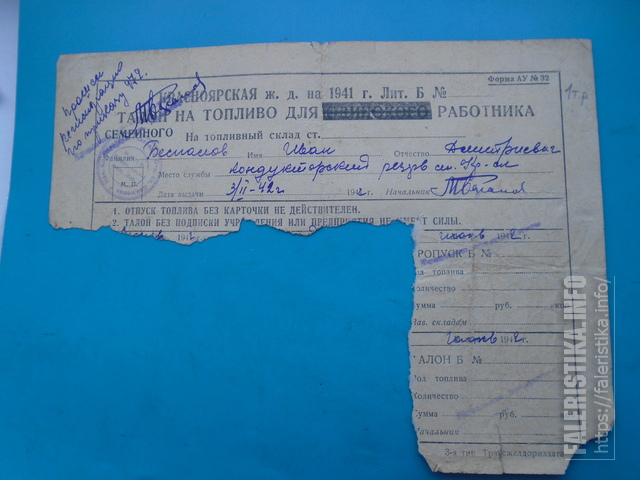 Форма АУ № 32
1 т.р.
КРАСНОЯРСКАЯ ж. д. на 1941 г. Лит. Б №
ТАЛОН НА ТОПЛИВО ДЛЯ РАБОТНИКА
СЕМЕЙНОГО На топливный склад ст.
Фамилия Беспалов Имя Иван Отчество Дмитриевич
Место службы Кондукторский резерв
М. П.
Дата выдачи 3/II-42г 1942 г. Начальник
1. ОТПУСК ТОПЛИВА БЕЗ КАРТОЧКИ НЕ ДЕЙСТВИТЕЛЕН.
2. ТАЛОН БЕЗ ПОДПИСКИ УЧРЕЖДЕНИЯ ИЛИ ПРЕДПРИЯТИЯ НЕ ИМЕЕТ СИЛЫ.
194
июнь 1942 г.
РОПУСК Б №
од топлива
оличество
умма руб. ко
ав. складом
1942 г.
АЛОН Б №
од топлива
оличество
умма руб.
ачальник
3-я тип. Трансжелдориздата
FALERISTIKA.INFO
https://faleristika.info/